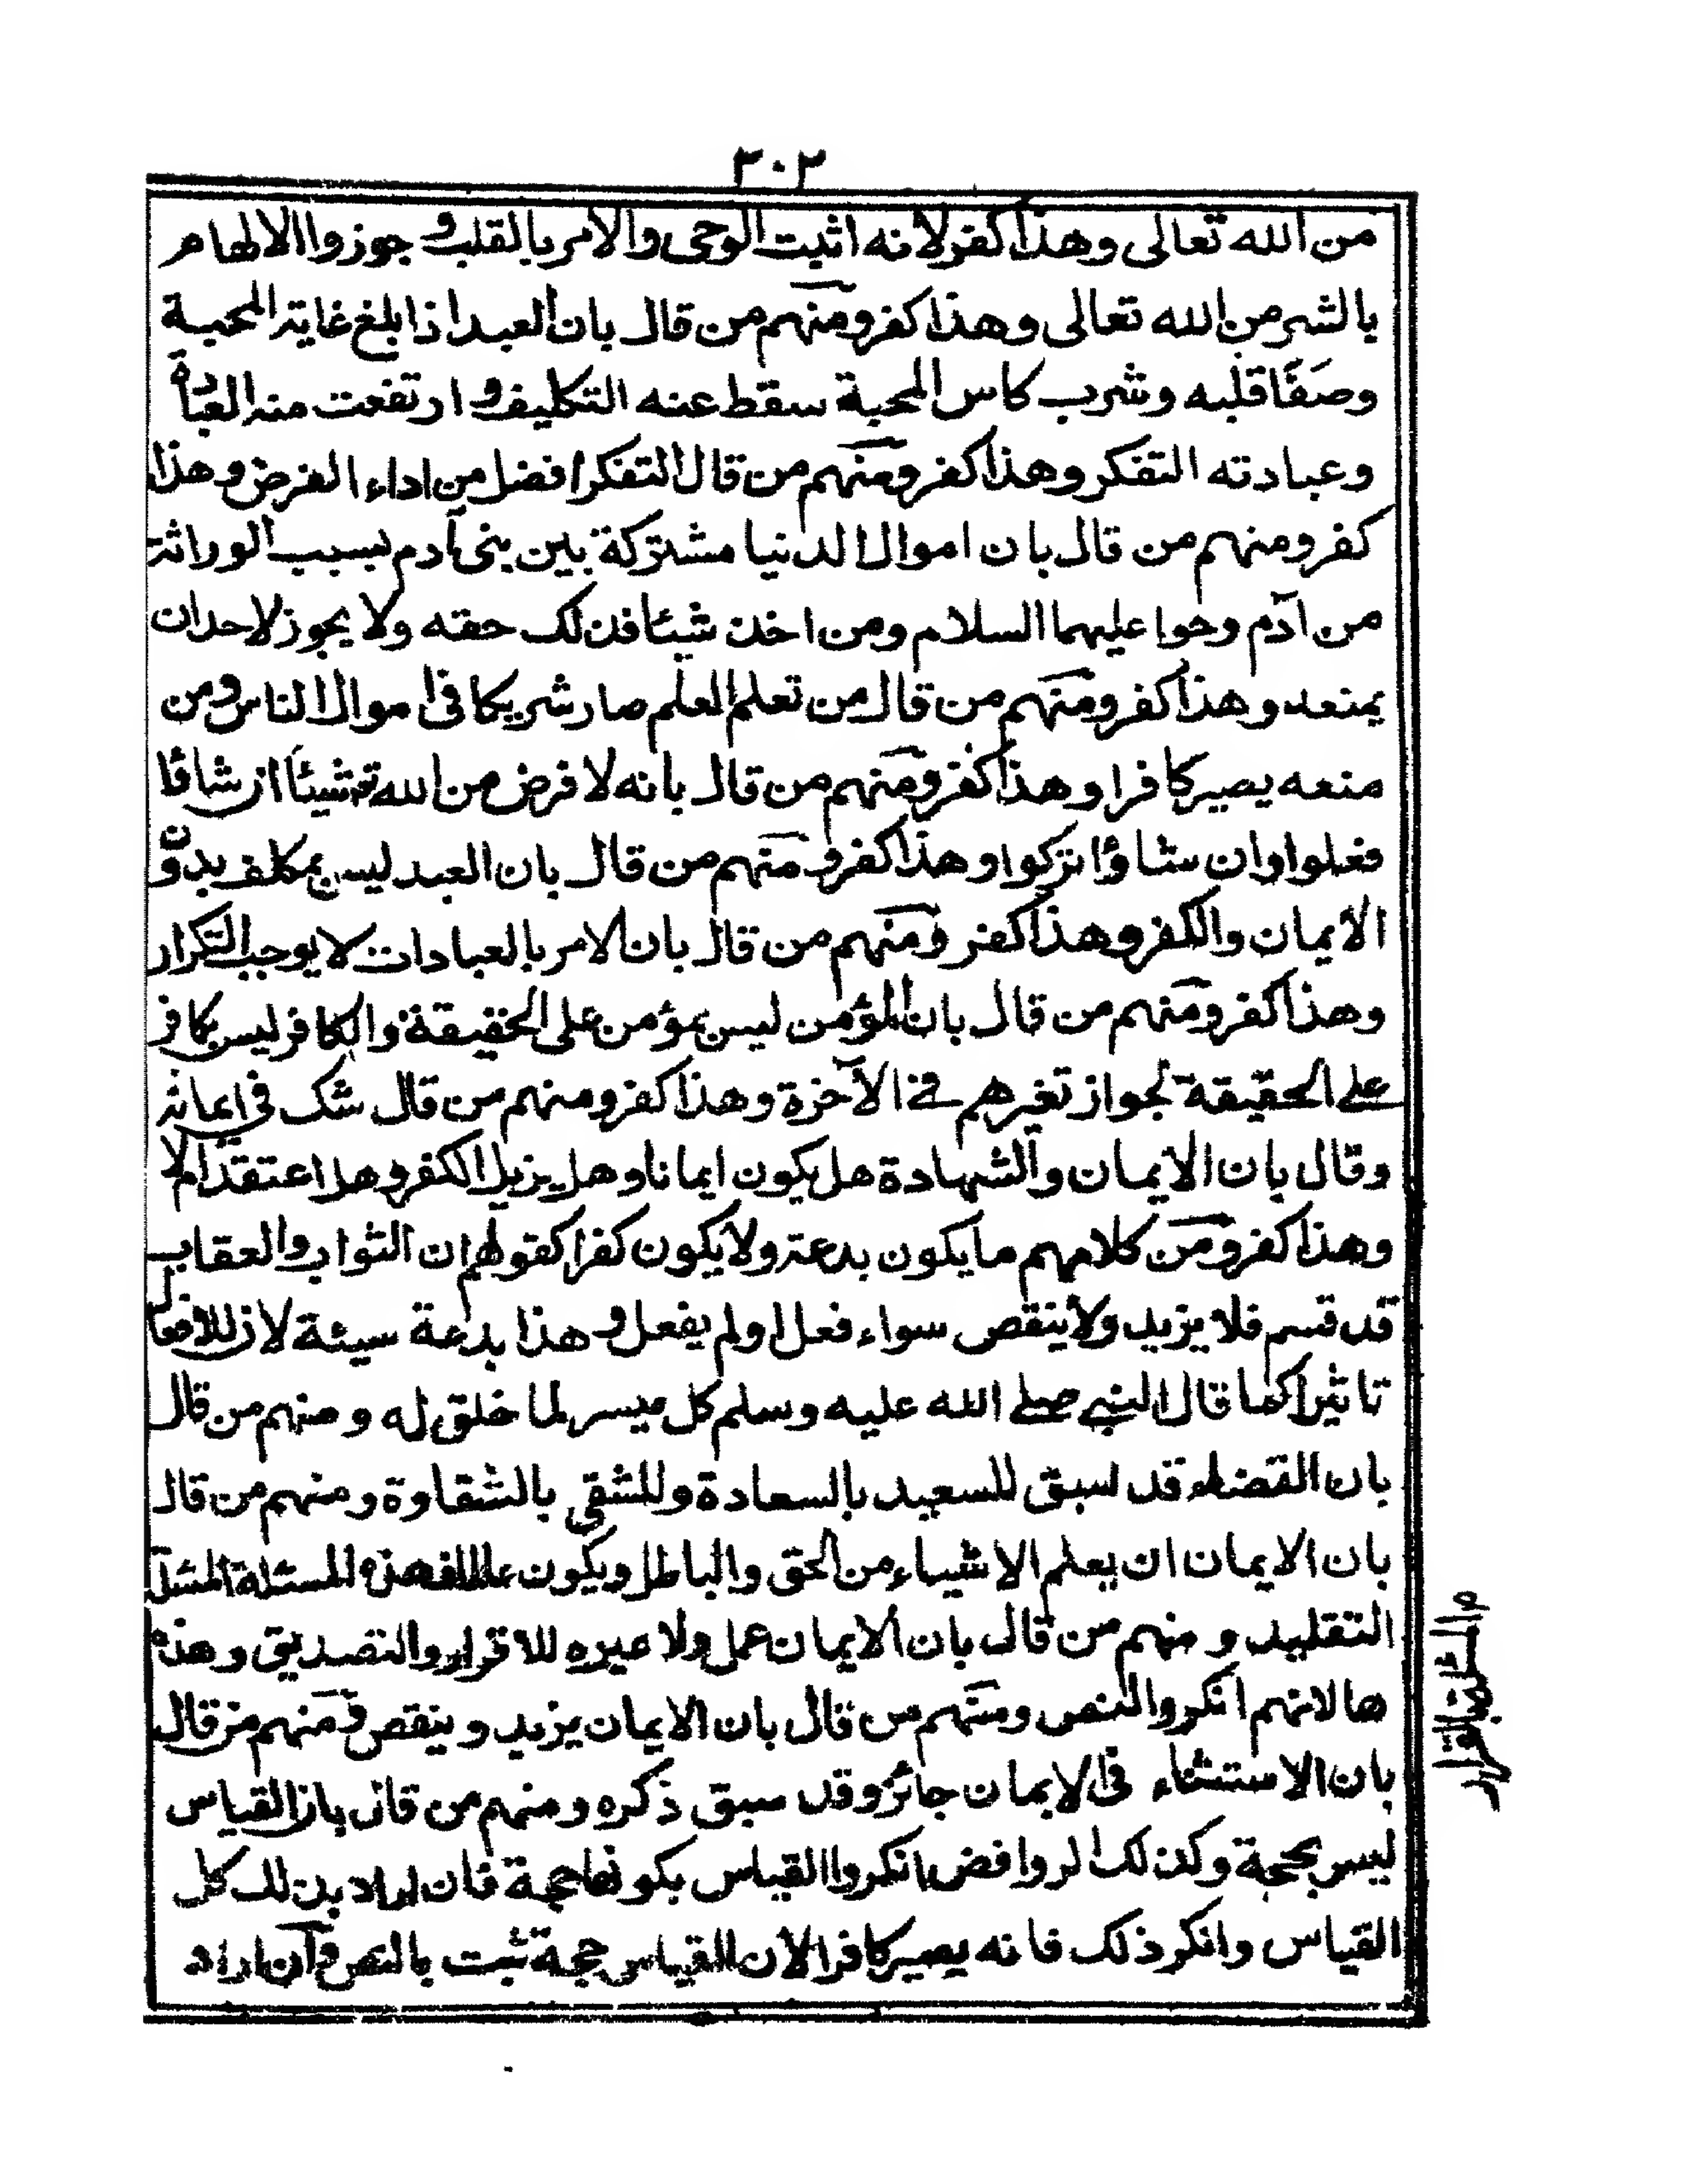 ٣٠٢
من الله تعالى وهذا كفر لانه اثبت الوحى والامر بالقلب و جوزوا الالهام
بالشر من الله تعالى وهذا كفر ومنهم من قال بان العبد اذا بلغ غاية المحبة
وصفا قلبه وشرب كاس المحبة سقط عنه التكليف و ارتفعت منه العبادة
وعبادته التفكر وهذا كفر ومنهم من قال التفكر افضل من اداء الفرض وهذا
كفر ومنهم من قال بان اموال الدنيا مشتركة بين بنى آدم بسبب الوراثة
من آدم وحوا عليهما السلام ومن اخذ شيئا فذلك حقه ولا يجوز لاحد ان
يمنعه وهذا كفر ومنهم من قال من تعلم العلم صار شريكا فى اموال الناس ومن
منعه يصير كافرا وهذا كفر ومنهم من قال بانه لا فرض من الله تع شيئا ان شاؤا
فعلوا وان شاؤا تركوا وهذا كفر ومنهم من قال بان العبد ليس بمكلف بدون
الايمان والكفر وهذا كفر ومنهم من قال بان الامر بالعبادات لا يوجب التكرار
وهذا كفر ومنهم من قال بان المؤمن ليس بمؤمن على الحقيقة والكافر ليس بكافر
على الحقيقة لجواز تغيرهم فى الآخرة وهذا كفر ومنهم من قال شك فى ايمانه
وقال بان الايمان والشهادة هل يكون ايمانا وهل يزيل الكفر وهل اعتقد ام لا
وهذا كفر ومن كلامهم ما يكون بدعة ولا يكون كفرا كقولهم ان الثواب والعقاب
قد قسم فلا يزيد ولا ينقص سواء فعل او لم يفعل و هذا بدعة سيئة لان للافعال
تاثيرا كما قال النبى صلى الله عليه وسلم كل ميسر لما خلق له و منهم من قال
بان القضاء قد سبق للسعيد بالسعادة وللشقى بالشقاوة ومنهم من قال
بان الايمان ان يعلم الاشياء من الحق والباطل ويكون هذه المسئلة
التقليد و منهم من قال بان الايمان عمل ولا غيره للاقرار والتصديق وهذه
ها لانهم انكروا النص ومنهم من قال بان الايمان يزيد و ينقص ومنهم من قال
بان الاستثناء فى الايمان جائز وقد سبق ذكره ومنهم من قال بان القياس
ليس بحجة وكذلك الروافض انكروا القياس بكونها حجة فان اراد بذلك كل
القياس وانكر ذلك فانه يصير كافرا لان القياس حجة ثبت بالنص وان اراد